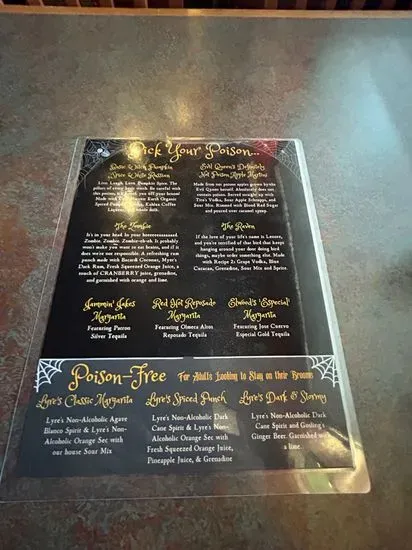 Pick Your Poison...
Spice White Russian
Live, Laugh, Love, Pumpkin Spice. The
Evil Queen's Definitely
Not Poison Apple Martini
Made from not poison apples grown by the
Evil Queen herself. Absolutely does not
contain poison. Served straight up with
Tito's Vodka, Sour Apple Schnapps, and
Sour Mix. Rimmed with Blood Red Sugar
and poured over caramel syrup.
The Zombie
Is in your head In your heeeeeeaaaaaad.
Zombie, Zombie, Zombie-eh-eh. It probably
won't make you want to eat brains, and if it
does we're not responsible. A refreshing rum
punch made with Bacardi Coconut, Myer's
Dark Rum, Fresh Squeezed Orange Juice, a
touch of CRANBERRY juice, grenadine,
and garnished with orange and lime.
The Raven
If the love of your life's name is Lenore,
and you're terrified of that bird that keeps
hanging around your door doing bird
things, maybe order something else. Made
with Recipe 21 Grape Vodka, Blue
Curacao, Grenadine, Sour Mix and Sprite.
Jammin' Jakes
Margarita
Featuring Patron
Silver Tequila
Red Hot Reposado
Margarita
Featuring Olmeca Altos
Reposado Tequila
Elwood's 'Especial'
Margarita
Featuring Jose Cuervo
Especial Gold Tequila
Poison-Free For Adults Looking to Stay on their Brooms
Lyre's Classic Margarita
Lyre's Non-Alcoholic Agave
Blanco Spirit & Lyre's Non-
Alcoholic Orange Sec with
our house Sour Mix
Lyre's Spiced Punch
Lyre's Non-Alcoholic Dark
Cane Spirit & Lyre's Non-
Alcoholic Orange Sec with
Fresh Squeezed Orange Juice,
Pineapple Juice, & Grenadine
Lyre's Dark & Stormy
Lyre's Non-Alcoholic Dark
Cane Spirit and Gosling's
Ginger Beer. Garnished with
a lime.